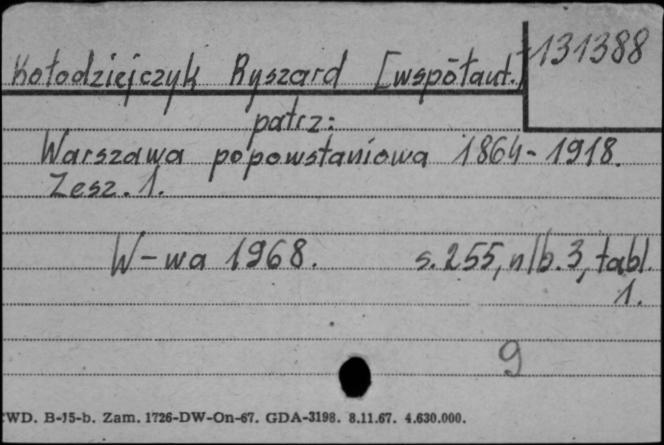 131388
Kołodziejczyk Ryszard [współaut.]
patrz:
Warszawa popowstaniowa 1864-1918.
Zesz. 1.
W-wa 1968. s. 255, nlb. 3, tabl.
1.
9
CWD. B-15-b. Zam. 1726-DW-On-67. GDA-3198. 8.11.67. 4.630.000.